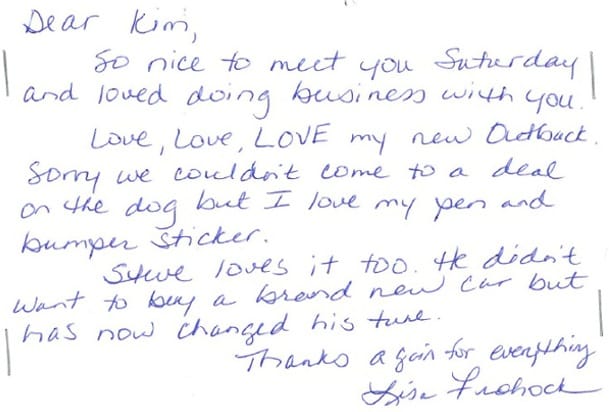 Dear Kim,
So nice to meet you Saturday
and loved doing business with you.
Love, Love, LOVE my new Outback.
Sorry we couldn't come to a deal
on the dog but I love my pen and
bumper sticker.
Steve loves it too. He didn't
want to buy a brand new car but
has now changed his tune.
Thanks again for everything
Lisa Frohock